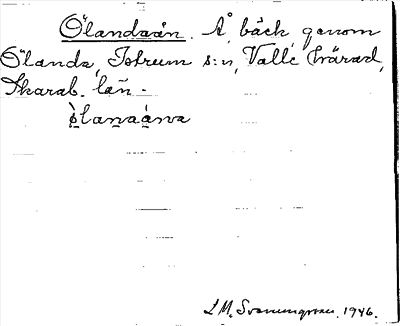 Ölandaån. Å, bäck genom
Ölanda, Istrum s:n, Valle härad,
Skarab. län.
ö̀lanaána
L M. Svanungsson. 1946.